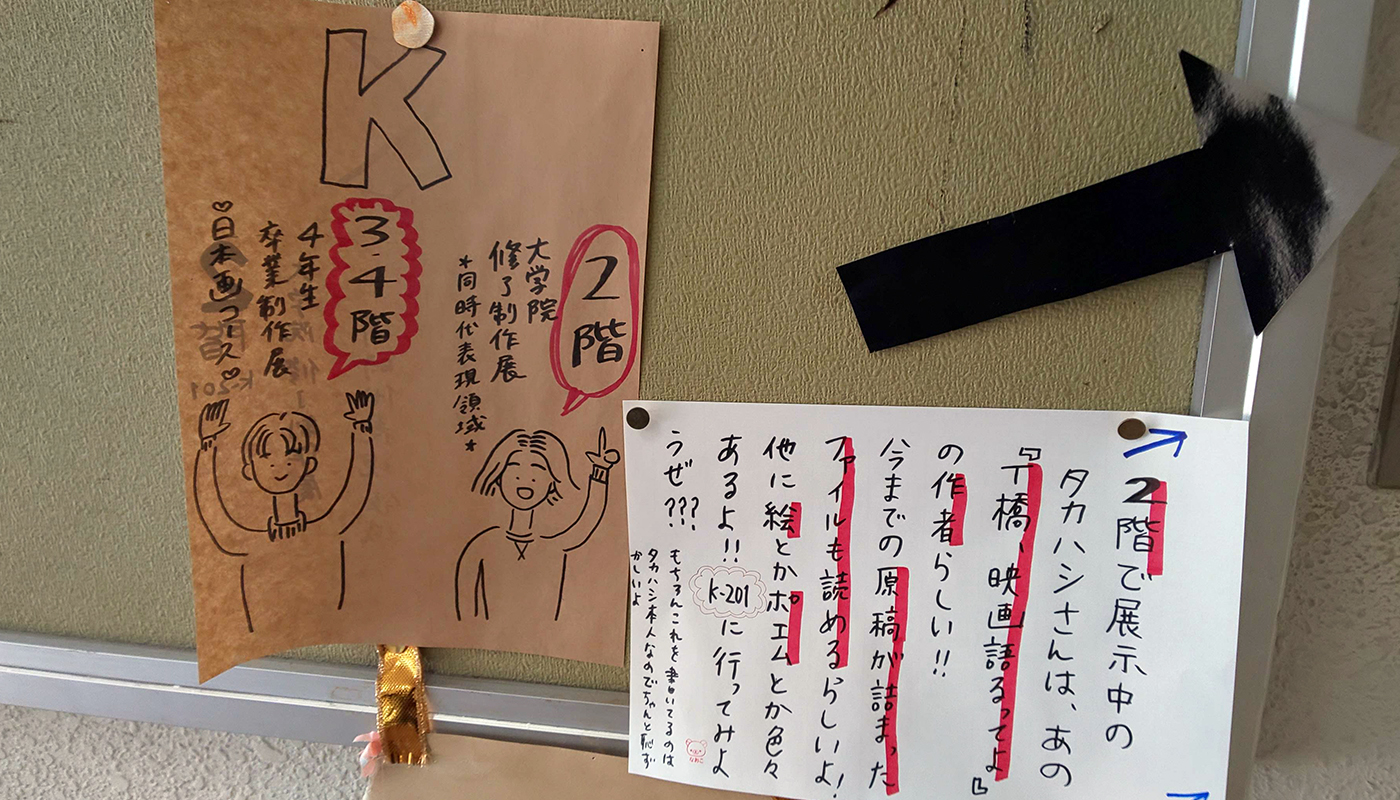 K
2階
大学院
修了制作展
*同時代表現領域*
3.4階
4年生
卒業制作展
♡日本画コース♡
2階で展示中の
タカハシさんは、あの
『T橋、映画語るってよ』
の作者らしい!!
今までの原稿が詰まった
ファイルも読めるらしいよ!
他に絵とかポエムとか色々
あるよ!! K-201 に行ってみよ
うぜ???
もちろんこれを書いてるのは
タカハシ本人なのでちゃんと恥ず
かしいよ